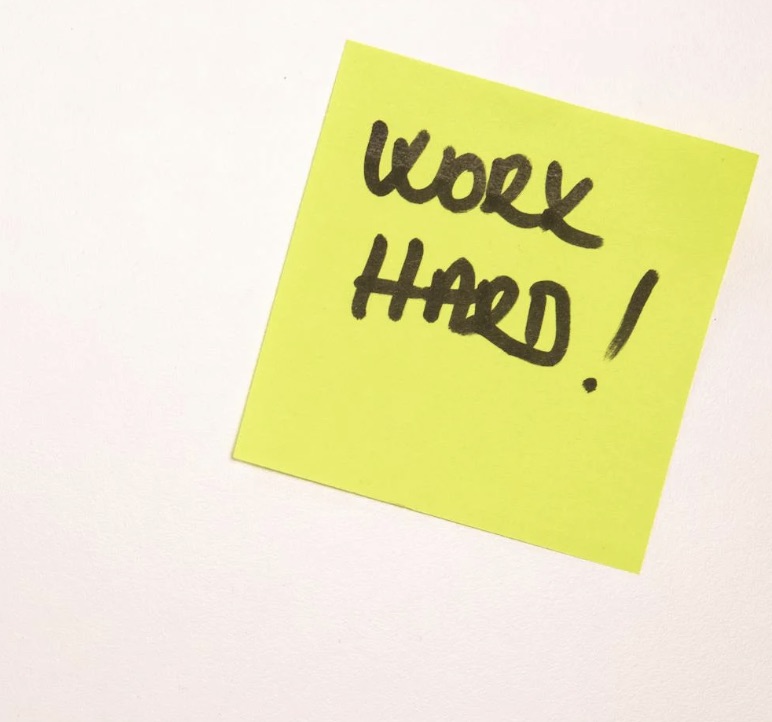 WORK
HARD!